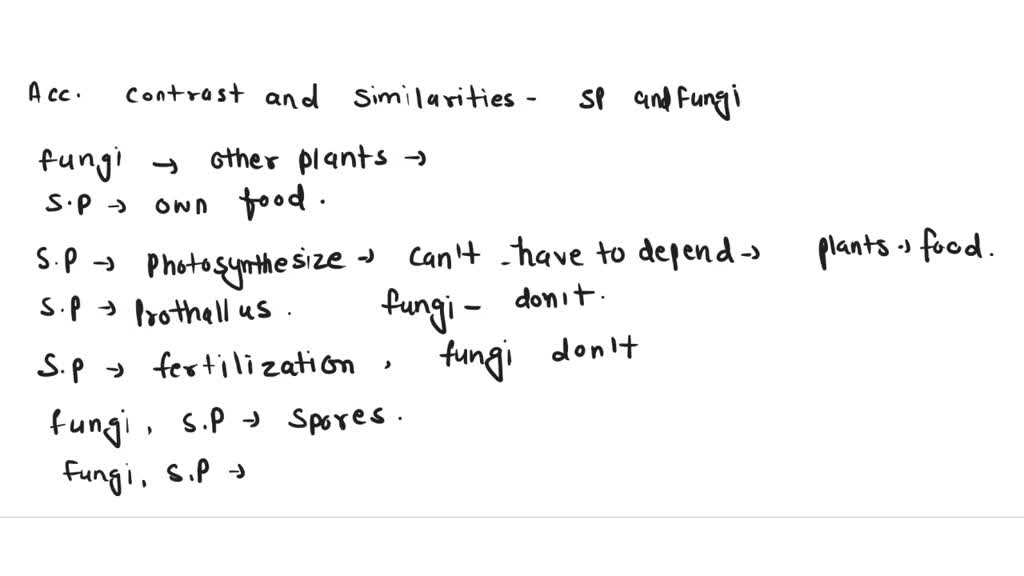 Acc. contrast and similarities - SP and fungi
fungi → other plants →
S.P → own food.
S.P → Photosynthesize → can't - have to depend → plants → food.
S.P → Prothallus. fungi - don't.
S.P → fertilization, fungi don't
fungi, S.P → spores.
Fungi, S.P →